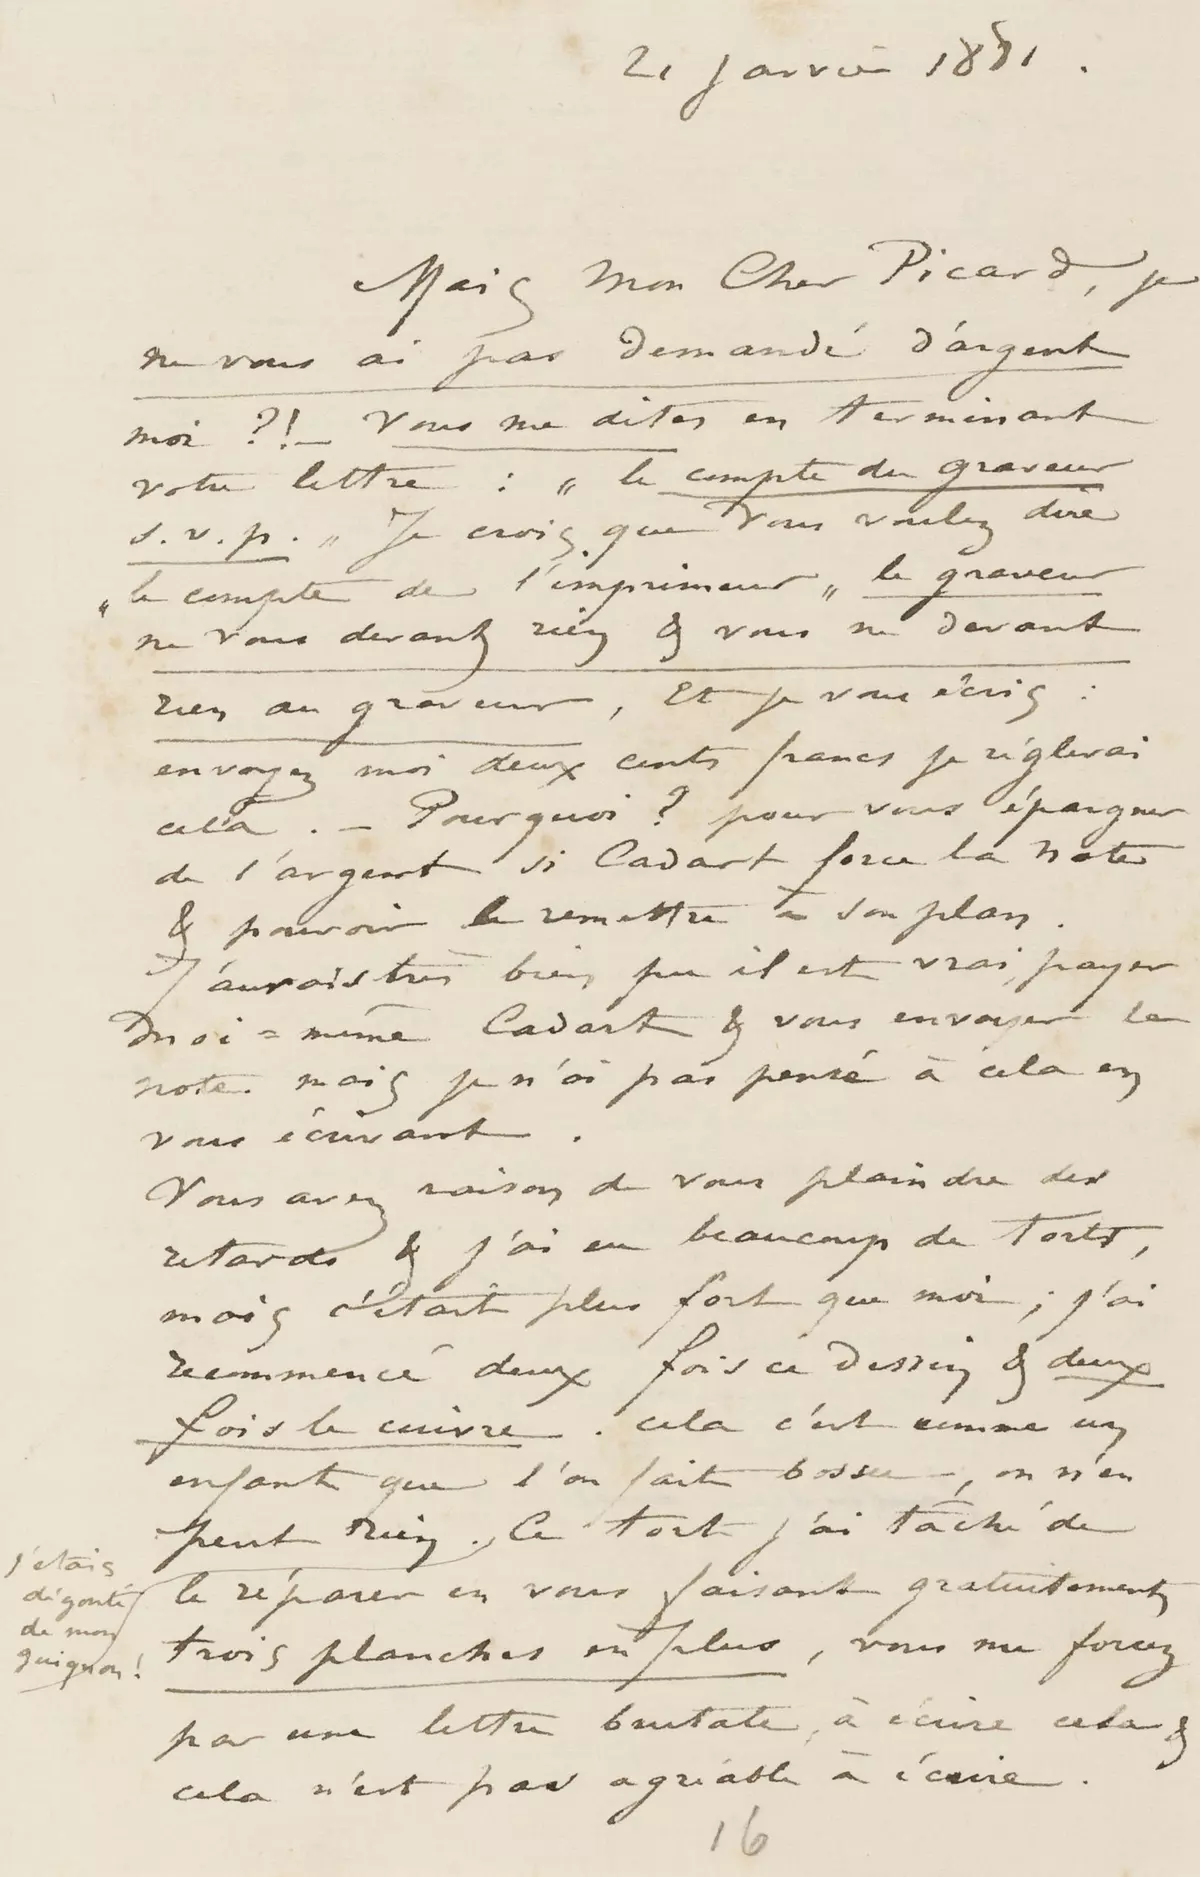 21 janvier 1881.
Mais Mon Cher Picard, je
ne vous ai pas demandé d'argent
moi ?!_ Vous me dites en terminant
votre lettre : " le compte du graveur
s.v.p. " Je crois que vous voulez dire
" le compte de l'imprimeur " le graveur
ne vous devant rien & vous ne devant
rien au graveur, Et je vous écris :
envoyez moi deux cents francs je règlerai
celà . _ Pourquoi ? pour vous épargner
de l'argent si Cadart force la note
& pouvoir le remettre à son plan.
J'aurais très bien pu il est vrai, payer
moi=même Cadart & vous envoyer la
note. mais je n'ai pas pensé à cela en
vous écrivant .
Vous avez raison de vous plaindre des
retards & j'ai eu beaucoup de torts,
mais c'était plus fort que moi ; j'ai
recommencé deux fois ce dessin & deux
fois le cuivre . cela c'est comme un
enfant que l'on fait bossu _, on n'en
peut rien. Ce tort j'ai tâché de
le réparer en vous faisant gratuitement
trois planches en plus, vous me forcez
par une lettre brutale, à écrire cela &
cela n'est pas agréable à écrire .
j'étais
dégouté
de mon
guignon !
16